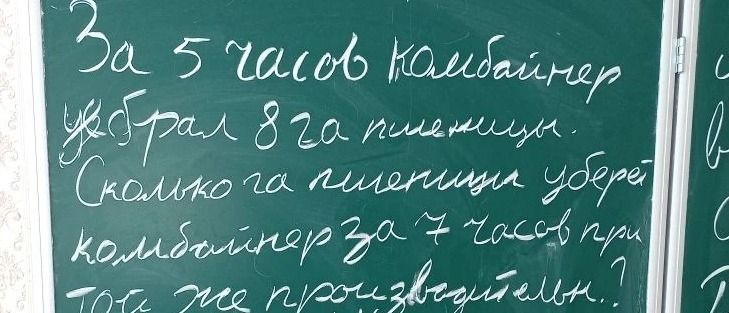 За 5 часов комбайнер
убрал 8 га пшеницы.
Сколько га пшеницы уберет
комбайнер за 7 часов при
той же производительн.?